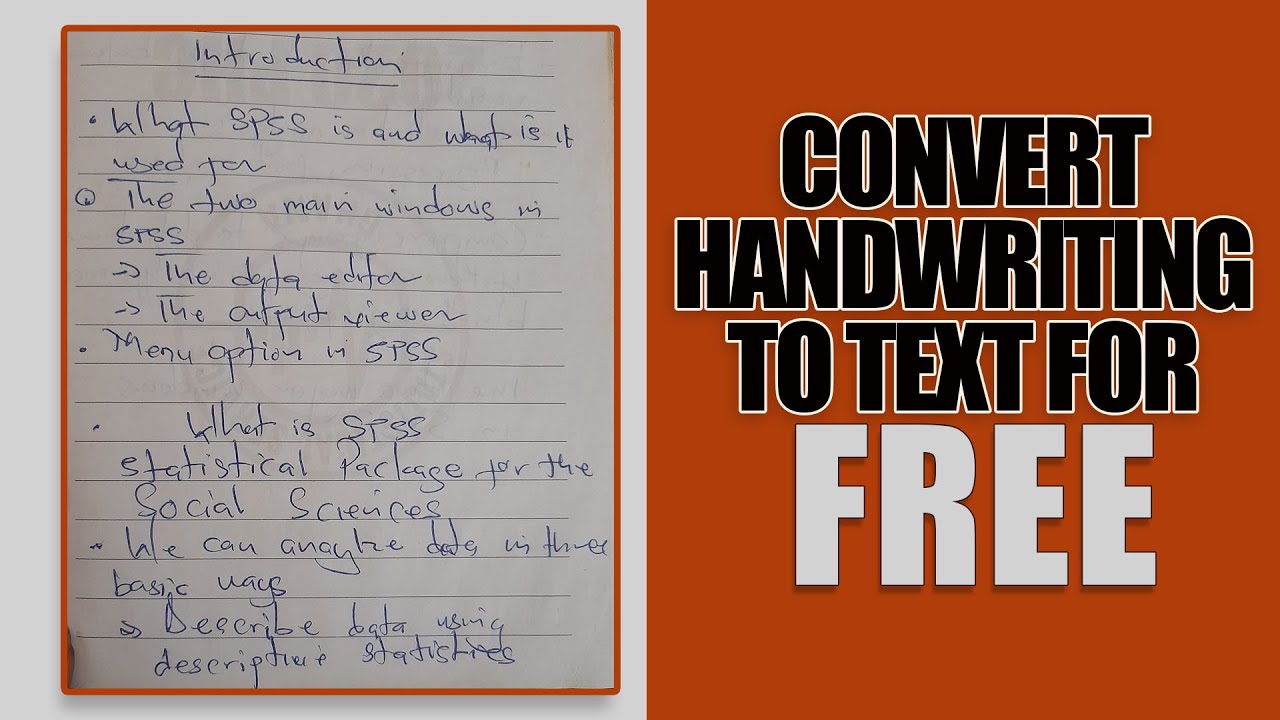 Introduction
• What SPSS is and what is it
used for
• The two main windows in
SPSS
-> The data editor
-> The output viewer
• Menu option in SPSS
• What is SPSS
Statistical Package for the
Social Sciences
• We can analyze data in three
basic ways
-> Describe data using
descriptive statistics
CONVERT
HANDWRITING
TO TEXT FOR
FREE